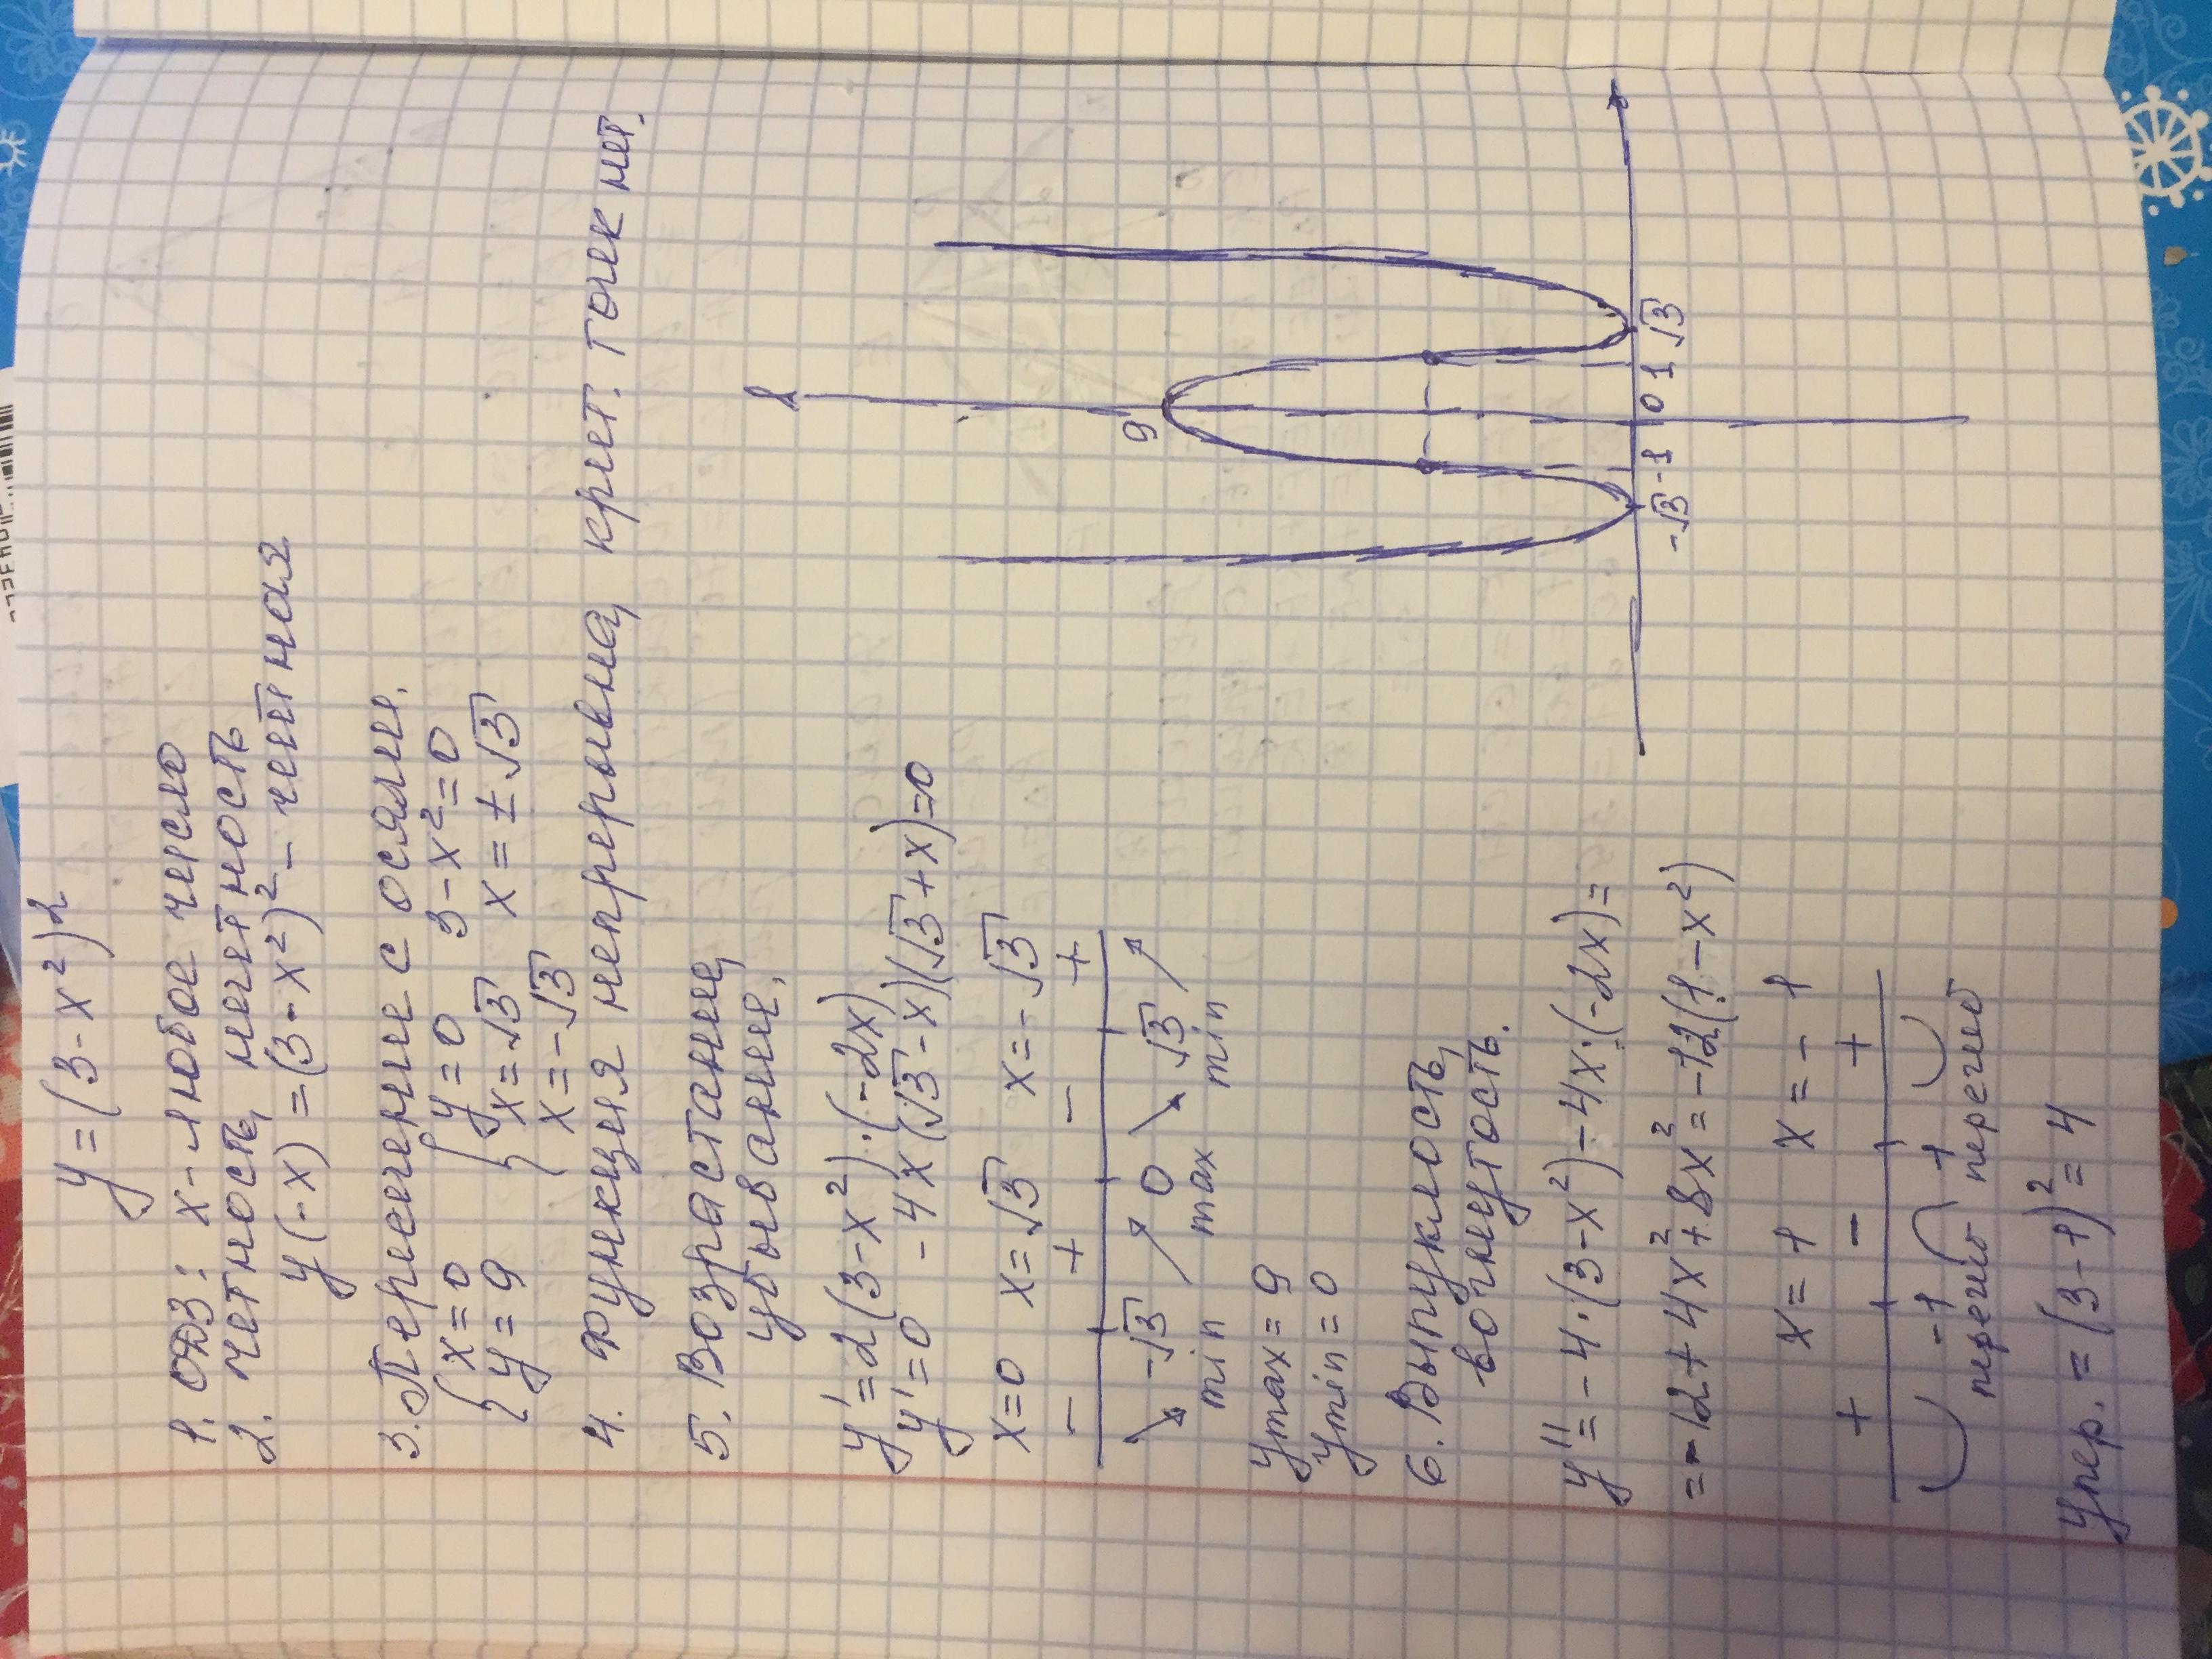 y = (3 - x²)²
1. ОДЗ: x - любое число
2. четность, нечетность
y(-x) = (3 - x²)² - четная
3. Пересечение с осями.
{ x = 0 { y = 0 3 - x² = 0
y = 9 x = √3 x = ± √3
x = -√3
4. Функция непрерывна, крит. точек нет.
5. Возрастание,
убывание.
y' = 2(3 - x²)·(-2x)
y' = 0 -4x(√3 - x)(√3 + x) = 0
x = 0 x = √3 x = -√3
- + - +
-√3 0 √3
min max min
ymax = 9
ymin = 0
6. Выпуклость,
вогнутость.
y'' = -4·(3 - x²) - 4x·(-2x) =
= -12 + 4x² + 8x² = -12(1 - x²)
x = 1 x = -1
+ - +
-1 1
перегиб перегиб
yпер. = (3 - 1)² = 4
9
-√3 -1 0 1 √3